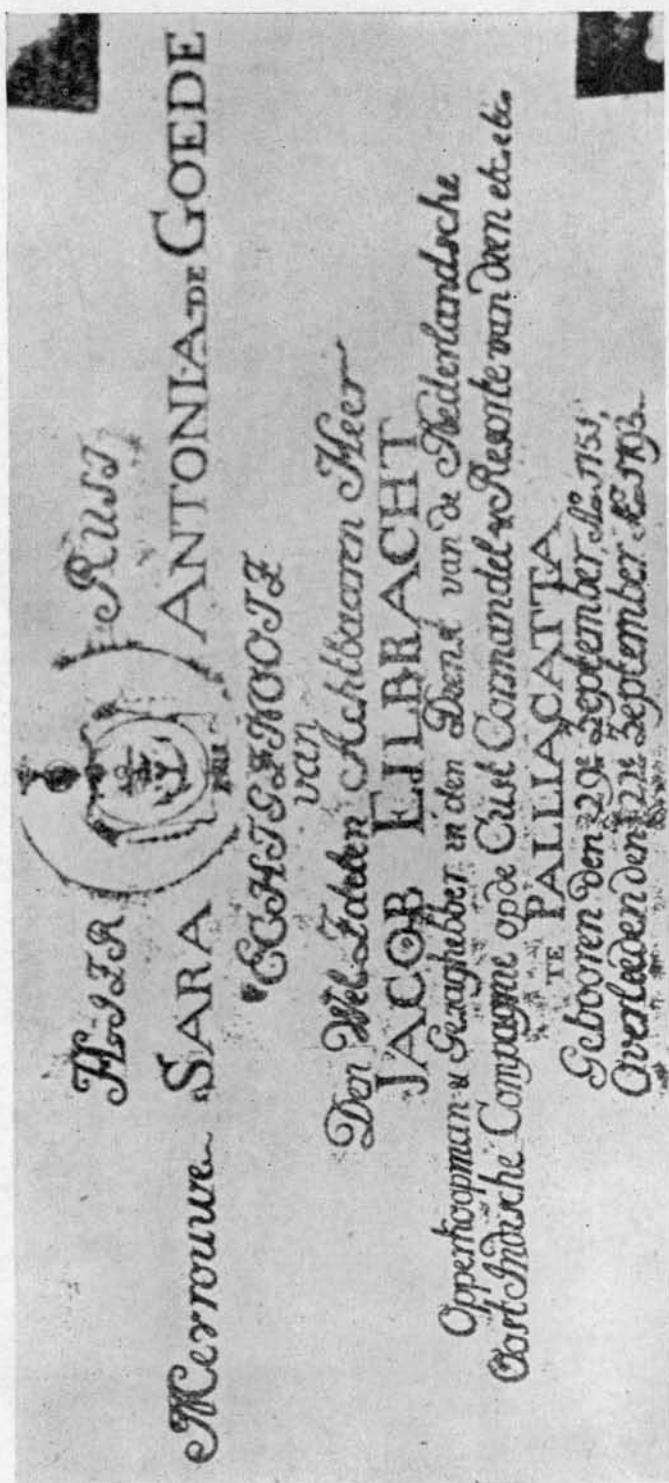 HIER RUST
Mevrouwe SARA ANTONIA DE GOEDE
ECHTGENOOTE
van
Den Wel Edelen Achtbaaren Heer
JACOB EILBRACHT
Opperkoopman & Gezaghebber in den Dienst van de Nederlandsche
Oost Indische Compagnie op de Cust Cormandel & Resorte van dien etc. etc.
TE PALLIACATTA
Gebooren den 29e September Ao 1751,
Overleeden den 21e September Ao 1793